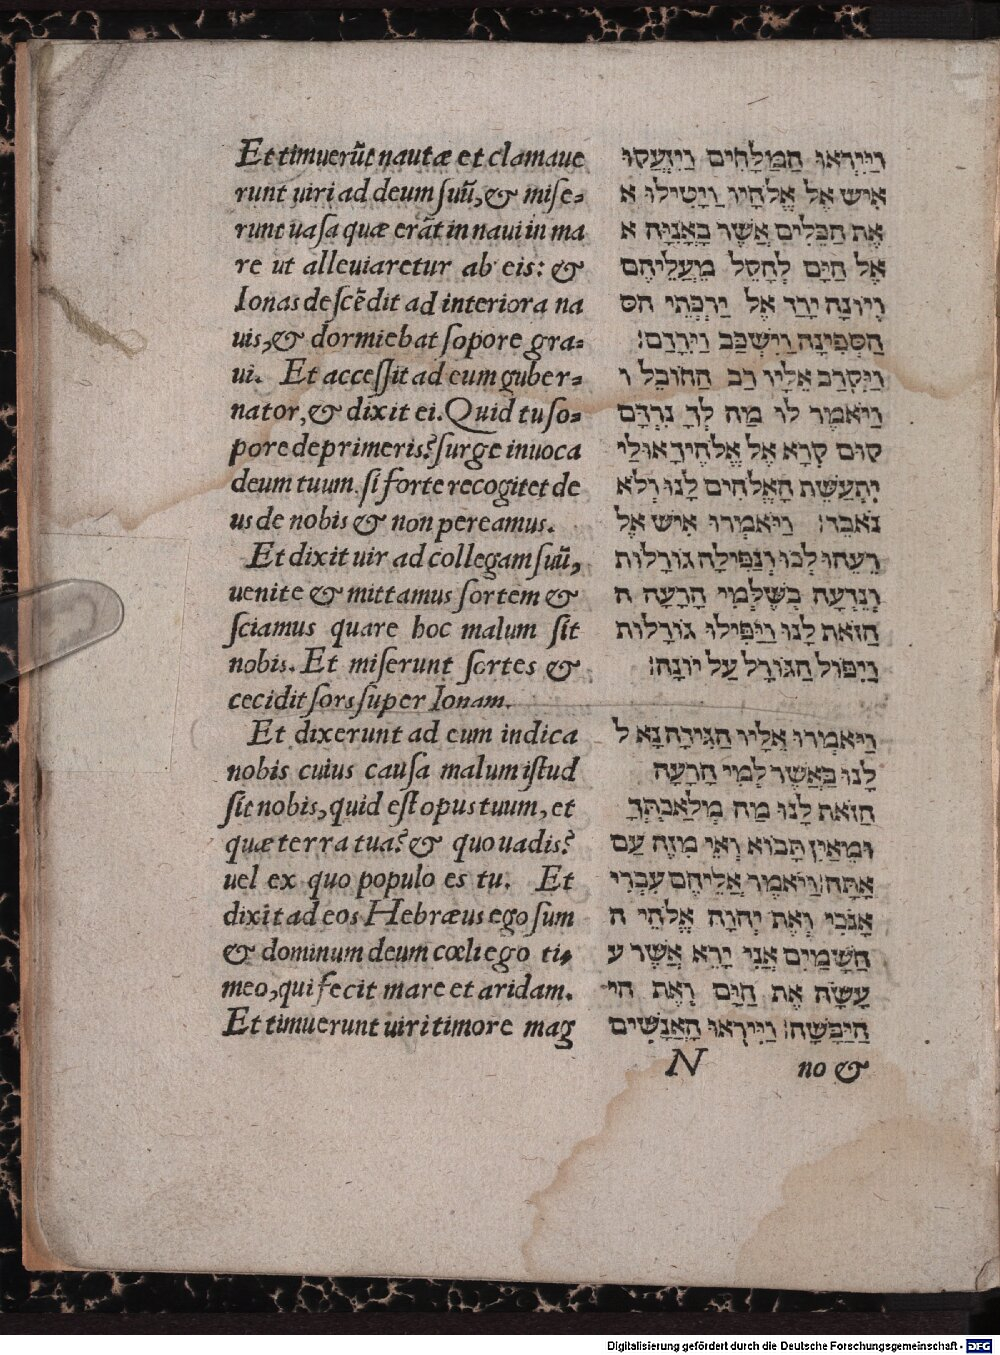 Et timuerũt nautæ et clamaue
runt uiri ad deum suũ, & mise-
runt uasa quæ erãt in naui in ma
re ut alleuiaretur ab eis: &
Ionas descẽdit ad interiora na
uis, & dormiebat sopore gra-
ui. Et accessit ad eum guber-
nator, & dixit ei. Quid tu so-
pore deprimeris? surge inuoca
deum tuum. si forte recogitet de
us de nobis & non pereamus.
Et dixit uir ad collegam suũ,
uenite & mittamus sortem &
sciamus quare hoc malum sit
nobis. Et miserunt sortes &
cecidit sors super Ionam.
Et dixerunt ad eum indica
nobis cuius causa malum istud
sit nobis, quid est opus tuum, et
quæ terra tua? & quo uadis?
uel ex quo populo es tu. Et
dixit ad eos Hebræus ego sum
& dominum deum cœli ego ti-
meo, qui fecit mare et aridam.
Et timuerunt uiri timore mag
וַיִּירְאוּ הַמַּלָּחִים וַיִּזְעֲקוּ
אִישׁ אֶל אֱלֹהָיו וַיָּטִילוּ א
אֶת הַכֵּלִים אֲשֶׁר בָּאֳנִיָּה א
אֶל הַיָּם לְהָקֵל מֵעֲלֵיהֶם
וְיוֹנָה יָרַד אֶל יַרְכְּתֵי הס
הַסְּפִינָה וַיִּשְׁכַּב וַיֵּרָדַם׃
וַיִּקְרַב אֵלָיו רַב הַחוֹבֵל ו
וַיֹּאמֶר לוֹ מַה לְּךָ נִרְדָּם
קוּם קְרָא אֶל אֱלֹהֶיךָ אוּלַי
יִתְעַשֵּׁת הָאֱלֹהִים לָנוּ וְלֹא
נֹאבֵד׃ וַיֹּאמְרוּ אִישׁ אֶל
רֵעֵהוּ לְכוּ וְנַפִּילָה גוֹרָלוֹת
וְנֵדְעָה בְּשֶׁלְּמִי הָרָעָה ה
הַזֹּאת לָנוּ וַיַּפִּילוּ גוֹרָלוֹת
וַיִּפּוֹל הַגּוֹרָל עַל יוֹנָה׃
וַיֹּאמְרוּ אֵלָיו הַגִּידָה נָא ל
לָנוּ בַּאֲשֶׁר לְמִי הָרָעָה
הַזֹּאת לָנוּ מַה מְּלַאכְתְּךָ
וּמֵאַיִן תָּבוֹא וְאֵי מִזֶּה עַם
אָתָּה׃ וַיֹּאמֶר אֲלֵיהֶם עִבְרִי
אָנֹכִי וְאֶת יְהוָה אֱלֹהֵי ה
הַשָּׁמַיִם אֲנִי יָרֵא אֲשֶׁר ע
עָשָׂה אֶת הַיָּם וְאֶת הי
הַיַּבָּשָׁה׃ וַיִּירְאוּ הָאֲנָשִׁים
N no &
Digitalisierung gefördert durch die Deutsche Forschungsgemeinschaft - DFG